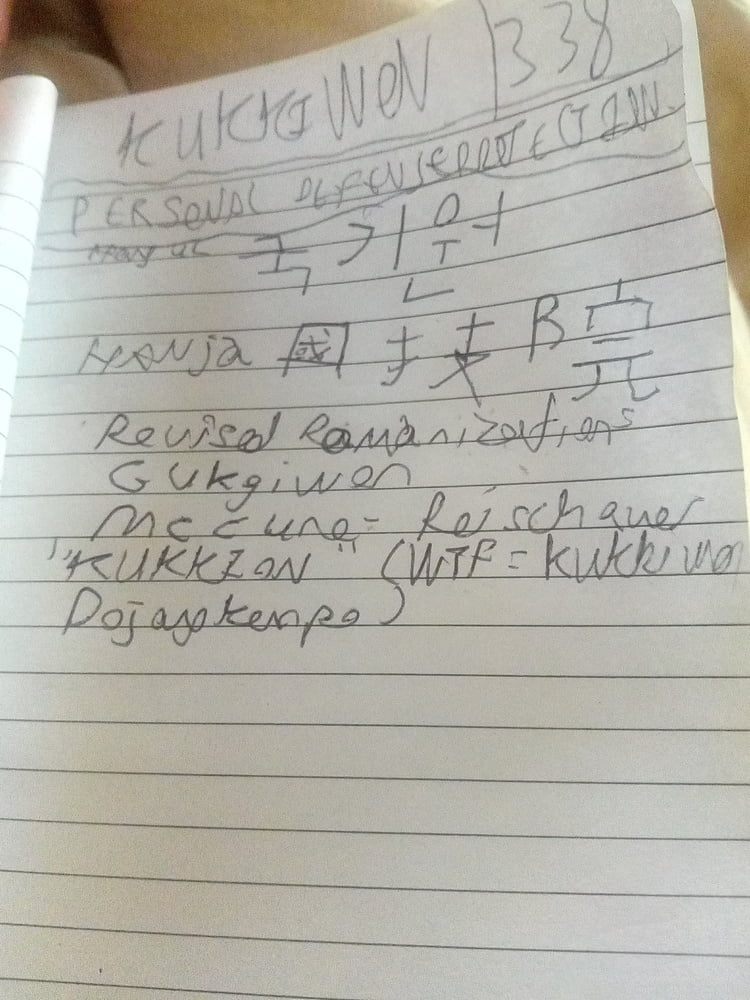 KUKKIWON 338
PERSONAL DEFENSEPROTECTION
Hangul 국기원
HANja 國技院
Revised Romanizations
Gukgiwon
McCune-Reischauer
"KUKKION" (WTF = Kukkiwon
Dojangkempo)